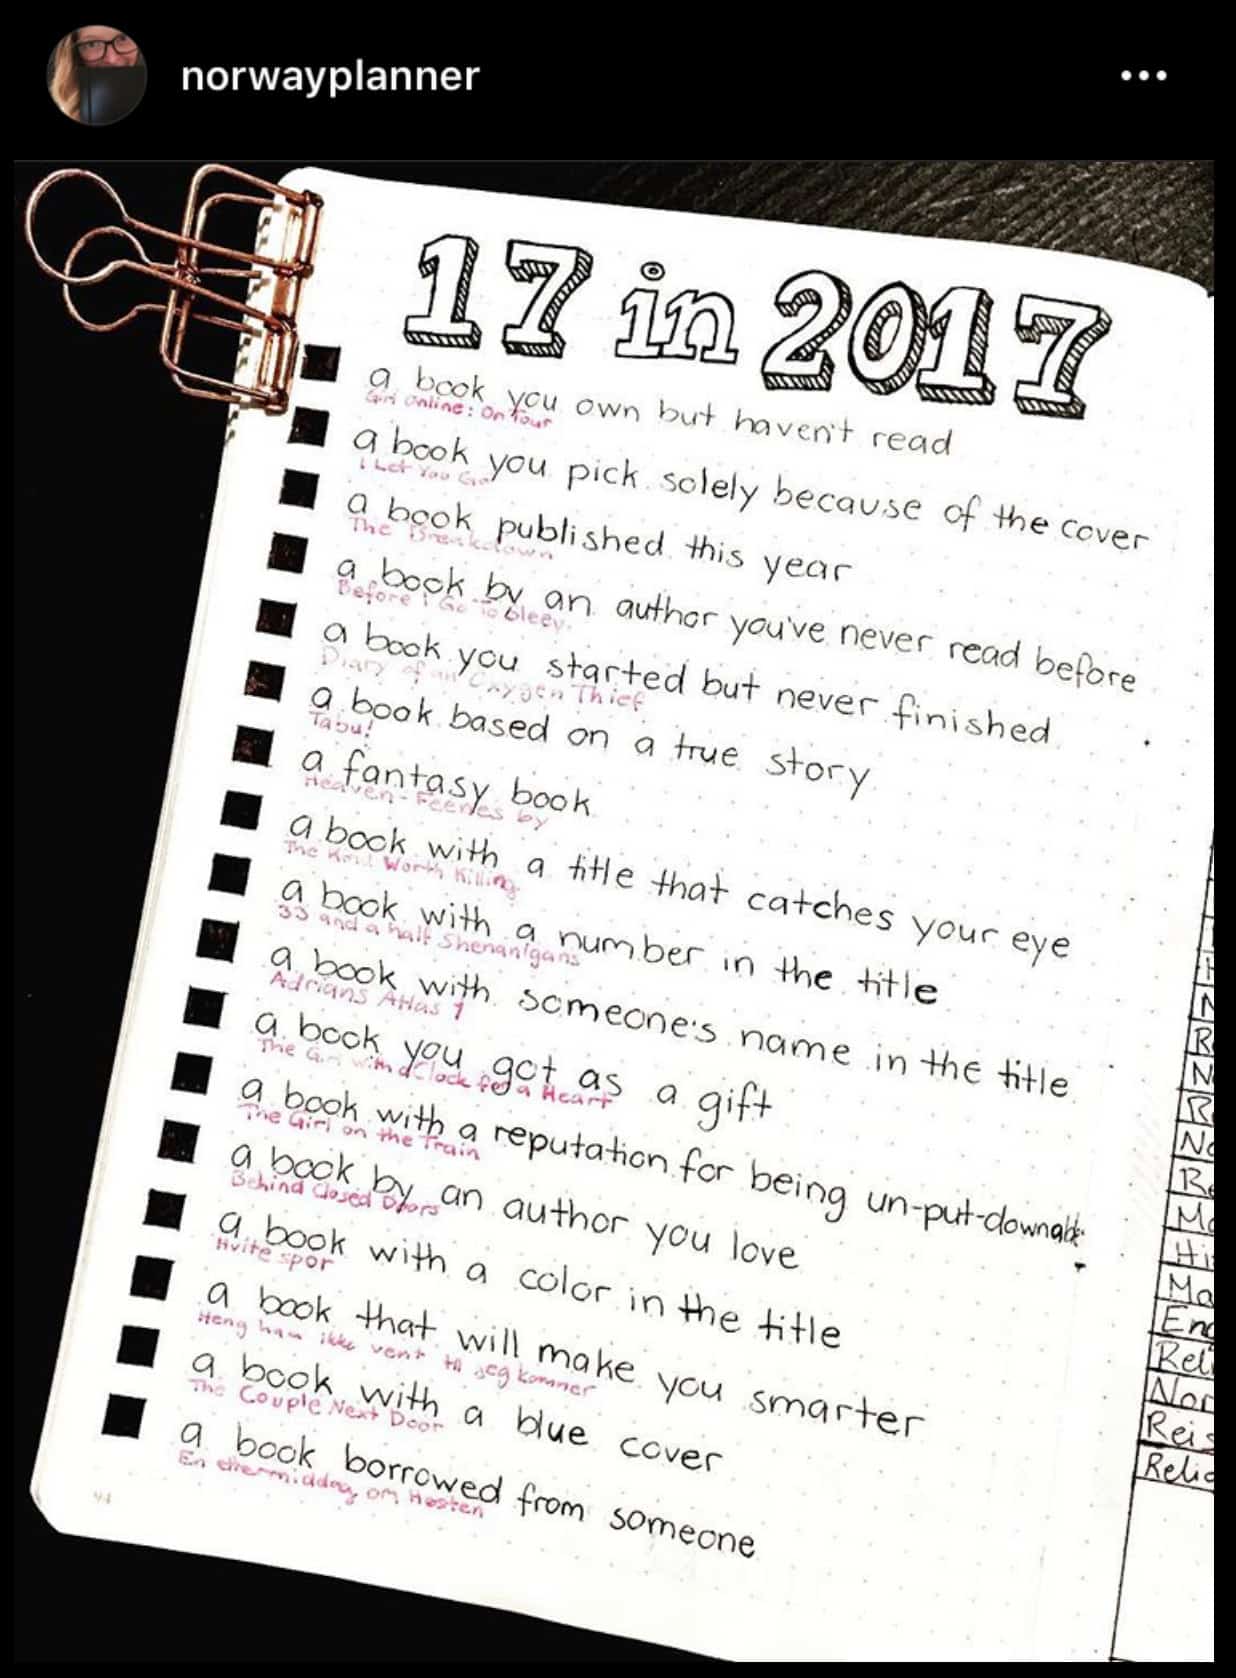 norwayplanner
17 in 2017
a book you own but haven't read
Girl Online: On Tour
a book you pick solely because of the cover
I Let You Go
a book published this year
The Breakdown
a book by an author you've never read before
Before I Go To Sleep
a book you started but never finished
Diary of an Oxygen Thief
a book based on a true story
Tabu!
a fantasy book
Heaven - Feenes by
a book with a title that catches your eye
The Kind Worth Killing
a book with a number in the title
33 and a half Shenanigans
a book with someone's name in the title
Adrians Atlas 1
a book you got as a gift
The Girl with a Clock for a Heart
a book with a reputation for being un-put-downable
The Girl on the Train
a book by an author you love
Behind Closed Doors
a book with a color in the title
Hvite spor
a book that will make you smarter
Heng ham ikke vent til jeg kommer
a book with a blue cover
The Couple Next Door
a book borrowed from someone
En ettermiddag om Høsten
44
N
R
N
No
Re
Mo
Hi
Ma
Eng
Reli
Nor
Reis
Relig